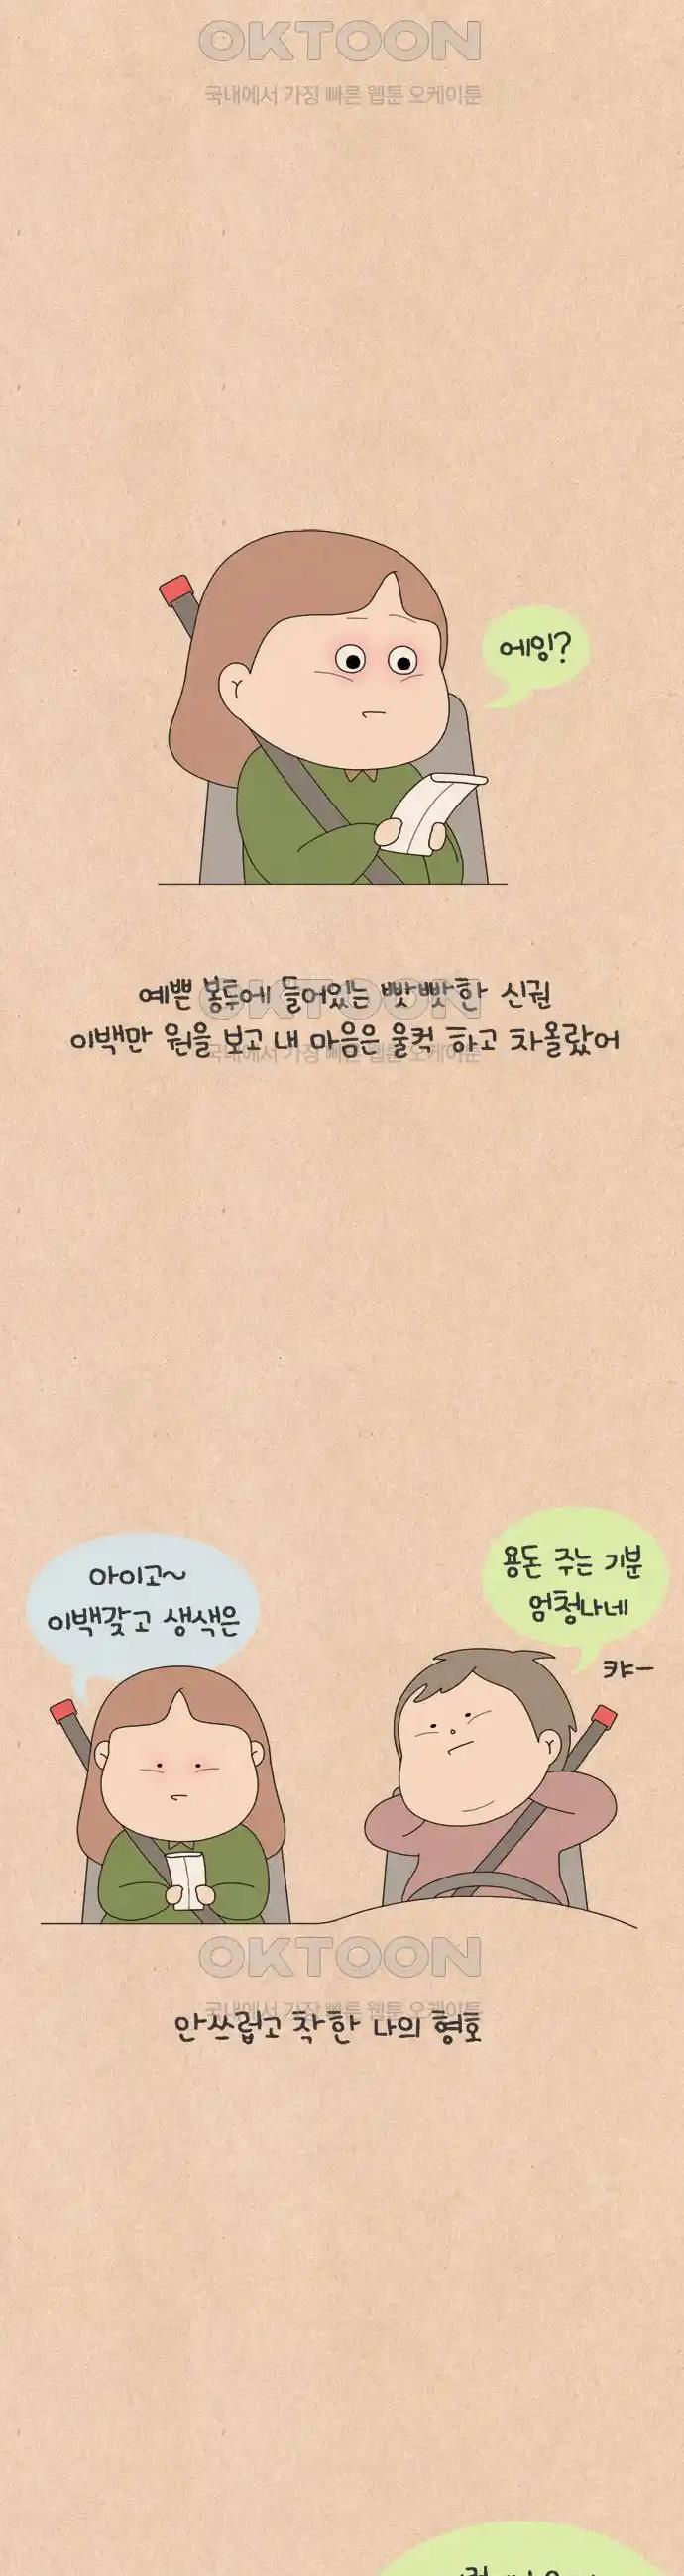 OKTOON
국내에서 가장 빠른 웹툰 오케이툰
에잉?
예쁜 봉투에 들어있는 빳빳한 신권
이백만 원을 보고 내 마음은 울컥 하고 차올랐어
OKTOON
국내에서 가장 빠른 웹툰 오케이툰
아이고~
이백갖고 생색은
용돈 주는 기분
엄청나네
캬ー
OKTOON
국내에서 가장 빠른 웹툰 오케이툰
안쓰럽고 착한 나의 형호